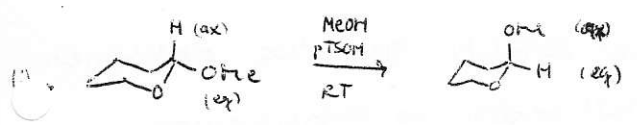 H (ax)
OMe
(eq)
O
MeOH
pTSOH
RT
OMe (ax)
H (eq)
O